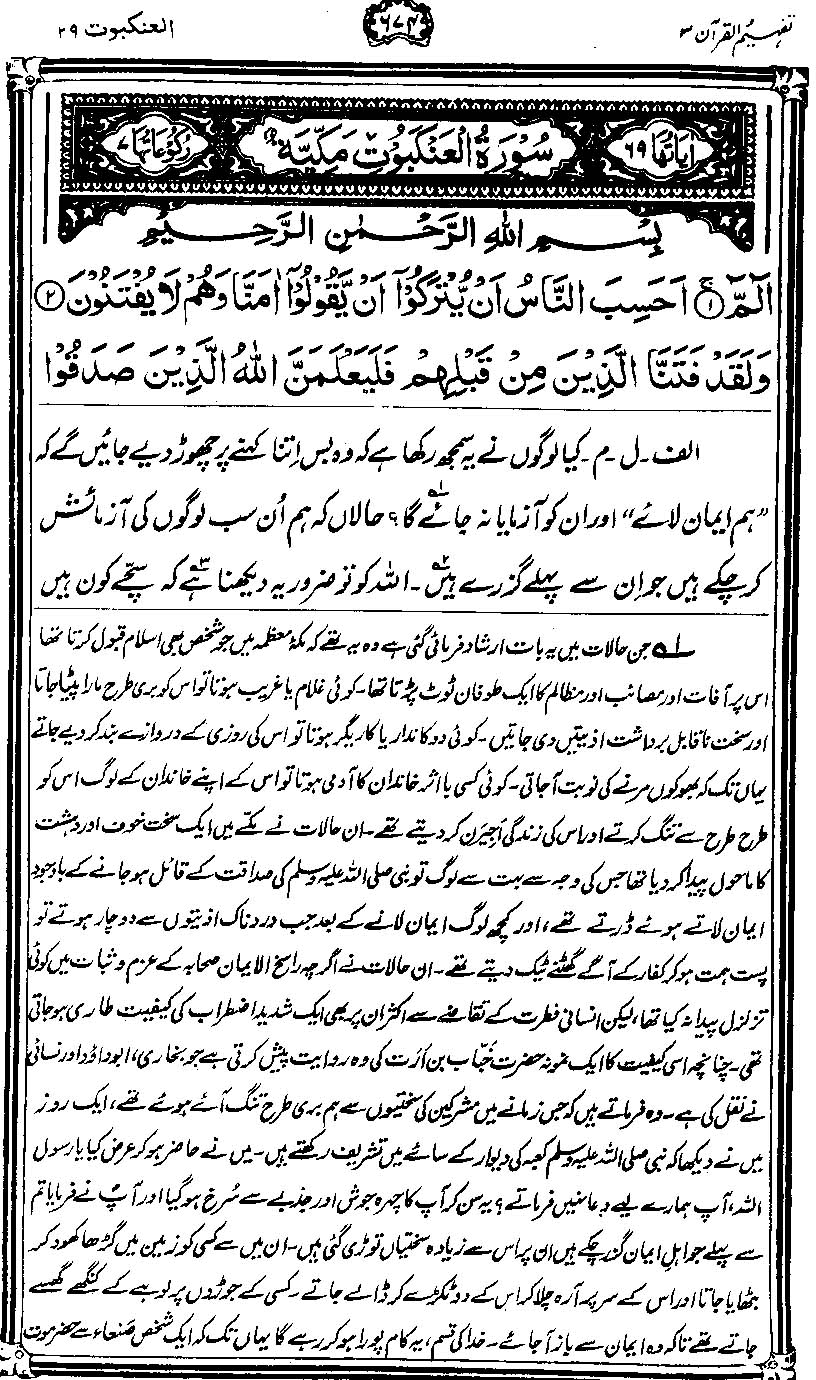 تفہیم القرآن ۳
۶۷۴
العنکبوت ۲۹
اٰیاتُھَا ۶۹
سُوْرَةُ الْعَنْكَبُوْتِ مَكِّيَّةٌ
رُكُوْعَاتُهَا ۷
بِسْمِ اللهِ الرَّحْمٰنِ الرَّحِيْمِ
الٓمّٓ ۚ﴿۱﴾ اَحَسِبَ النَّاسُ اَنْ يُّتْرَكُوْٓا اَنْ يَّقُوْلُوْٓا اٰمَنَّا وَهُمْ لَا يُفْتَنُوْنَ ﴿۲﴾
وَلَقَدْ فَتَنَّا الَّذِيْنَ مِنْ قَبْلِهِمْ فَلَيَعْلَمَنَّ اللهُ الَّذِيْنَ صَدَقُوْا
الف۔ ل۔ م۔ کیا لوگوں نے یہ سمجھ رکھا ہے کہ وہ بس اِتنا کہنے پر چھوڑ دیے جائیں گے کہ
”ہم ایمان لائے“ اور ان کو آزمایا نہ جائے گا؟ حالاں کہ ہم اُن سب لوگوں کی آزمائش
کر چکے ہیں جو اِن سے پہلے گزرے ہیں۔ اللہ کو تو ضرور یہ دیکھنا ہے کہ سچّے کون ہیں
۱؎ جن حالات میں یہ بات ارشاد فرمائی گئی ہے وہ یہ تھے کہ مکۂ معظمہ میں جو شخص بھی اسلام قبول کرتا تھا
اس پر آفات اور مصائب اور مظالم کا ایک طوفان ٹوٹ پڑتا تھا۔ کوئی غلام یا غریب ہوتا تو اس کو بری طرح مارا پیٹا جاتا
اور سخت ناقابلِ برداشت اذیتیں دی جاتیں۔ کوئی دوکاندار یا کاریگر ہوتا تو اس کی روزی کے دروازے بند کر دیے جاتے
یہاں تک کہ بھوکوں مرنے کی نوبت آجاتی۔ کوئی کسی بااثر خاندان کا آدمی ہوتا تو اس کے اپنے خاندان کے لوگ اس کو
طرح طرح سے تنگ کرتے اور اس کی زندگی اجیرن کر دیتے تھے۔ ان حالات نے مکّے میں ایک سخت خوف اور دہشت
کا ماحول پیدا کر دیا تھا جس کی وجہ سے بہت سے لوگ تو نبی صلی اللہ علیہ وسلم کی صداقت کے قائل ہو جانے کے باوجود
ایمان لاتے ہوئے ڈرتے تھے، اور کچھ لوگ ایمان لانے کے بعد جب دردناک اذیتوں سے دوچار ہوتے تو
پست ہمت ہو کر کفار کے آگے گھٹنے ٹیک دیتے تھے۔ ان حالات نے اگرچہ راسخ الایمان صحابہ کے عزم و ثبات میں کوئی
تزلزل پیدا نہ کیا تھا، لیکن انسانی فطرت کے تقاضے سے اکثر ان پر بھی ایک شدید اضطراب کی کیفیت طاری ہو جاتی
تھی۔ چنانچہ اسی کیفیت کا ایک نمونہ حضرت خَبّاب بن اَرَت کی وہ روایت پیش کرتی ہے جو بخاری، ابوداؤد اور نسائی
نے نقل کی ہے۔ وہ فرماتے ہیں کہ جس زمانے میں مشرکین کی سختیوں سے ہم بری طرح تنگ آئے ہوئے تھے، ایک روز
میں نے دیکھا کہ نبی صلی اللہ علیہ وسلم کعبہ کی دیوار کے سائے میں تشریف رکھتے ہیں۔ میں نے حاضر ہو کر عرض کیا یا رسول
اللہ، آپ ہمارے لیے دعا نہیں فرماتے؟ یہ سن کر آپ کا چہرہ جوش اور جذبے سے سُرخ ہو گیا اور آپ نے فرمایا تم
سے پہلے جو اہلِ ایمان گزر چکے ہیں ان پر اس سے زیادہ سختیاں توڑی گئی ہیں۔ ان میں سے کسی کو زمین میں گڑھا کھود کر
بٹھایا جاتا اور اس کے سر پر آرہ چلا کر اس کے دو ٹکڑے کر ڈالے جاتے۔ کسی کے جوڑوں پر لوہے کے کنگھے گھسے
جاتے تھے تاکہ وہ ایمان سے باز آجائے۔ خدا کی قسم، یہ کام پورا ہو کر رہے گا یہاں تک کہ ایک شخص صنعاء سے حضرموت